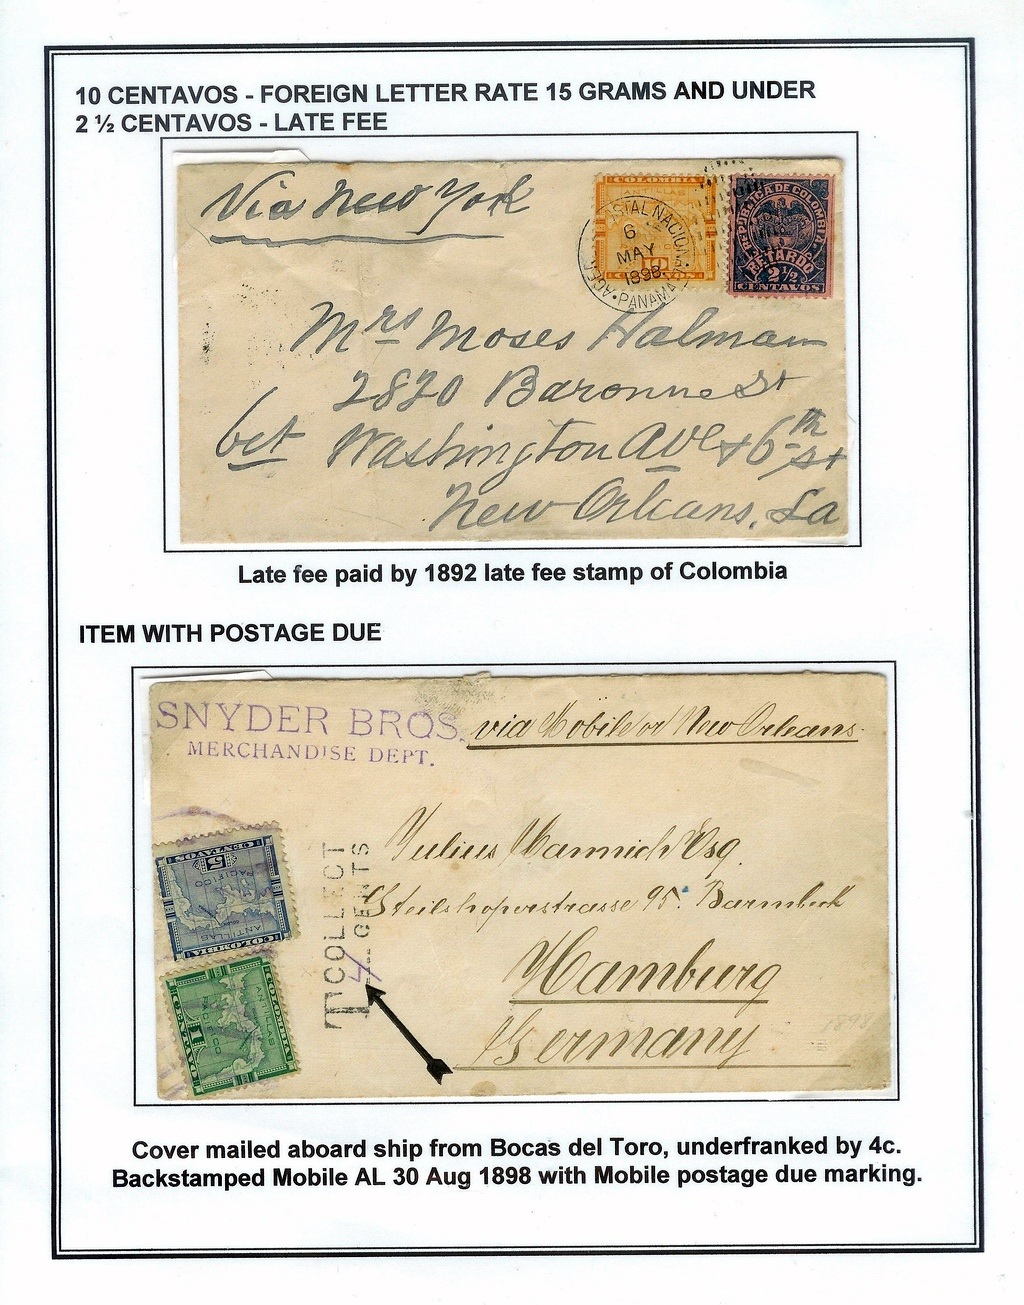 10 CENTAVOS - FOREIGN LETTER RATE 15 GRAMS AND UNDER
2 ½ CENTAVOS - LATE FEE
Via New York
COLOMBIA
ANTILLAS
10
POSTAL NACIONAL
6
MAY
1898
PANAMA
REPUBLICA DE COLOMBIA
RETARDO
2 1/2
CENTAVOS
Mrs Moses Halman
2820 Baronne St
bet Washington Ave & 6th St
New Orleans, La
Late fee paid by 1892 late fee stamp of Colombia
ITEM WITH POSTAGE DUE
SNYDER BROS.
MERCHANDISE DEPT.
via Mobile or New Orleans.
COLLECT
4 CENTS
5 CENTAVOS
PACIFICO
ANTILLAS
COLOMBIA
COLOMBIA
ANTILLAS
PACIFICO
1 CENTAVO
Julius Mannich Esq.
Steilshoperstrasse 95. Barmbeck
Hamburg
Germany
1898
Cover mailed aboard ship from Bocas del Toro, underfranked by 4c.
Backstamped Mobile AL 30 Aug 1898 with Mobile postage due marking.